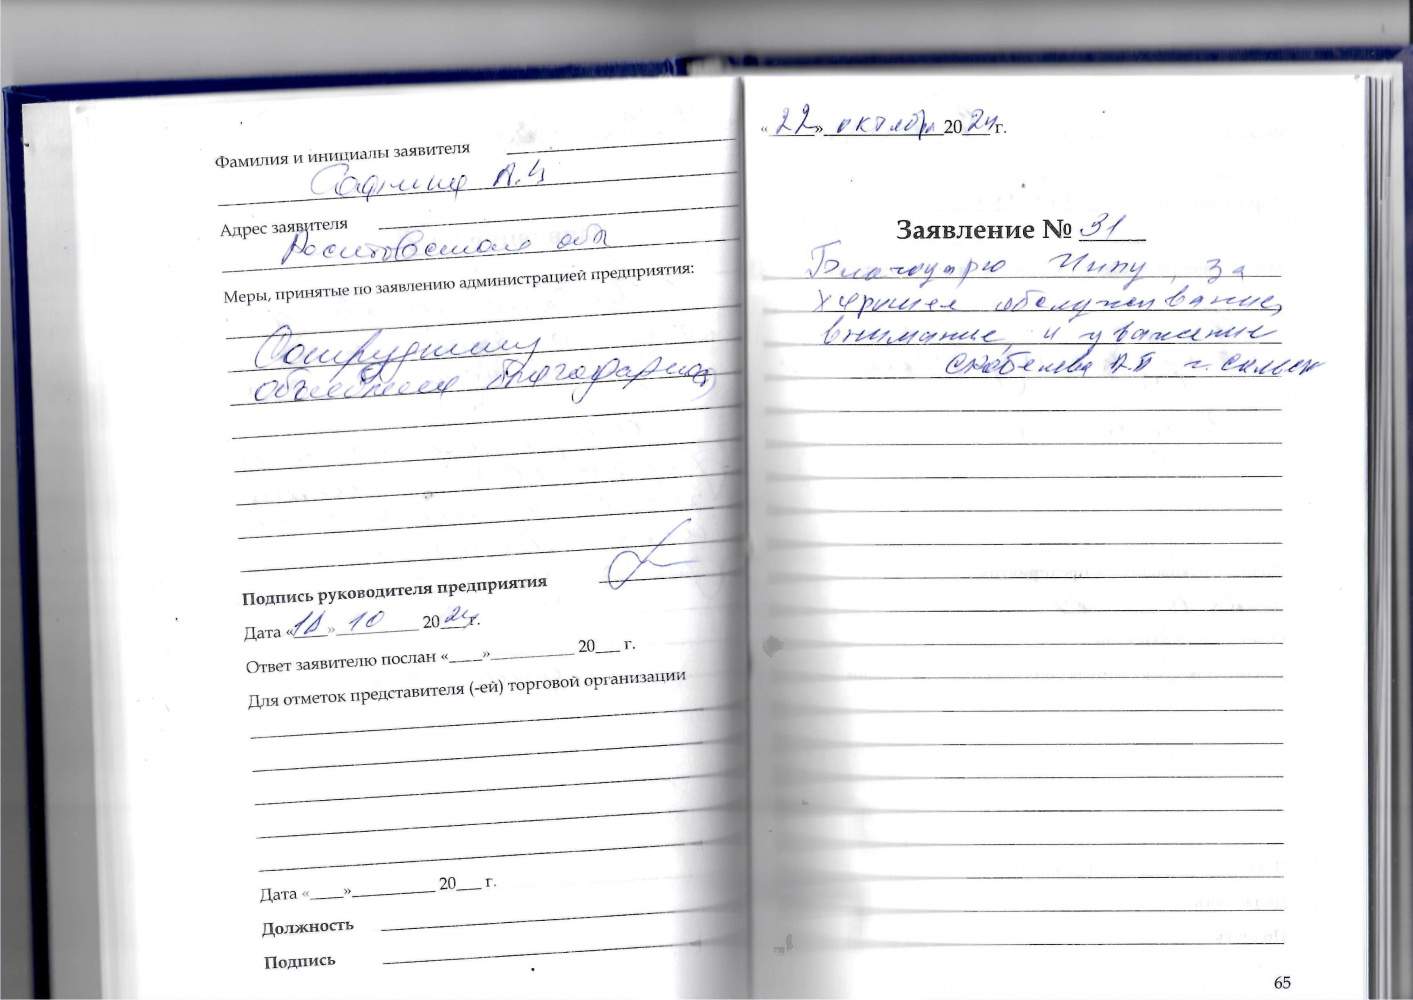 Фамилия и инициалы заявителя
А.И
Адрес заявителя
Ростовская обл
Меры, принятые по заявлению администрацией предприятия:
Сотруднику
объявлена благодарность
Подпись руководителя предприятия
Дата «18» 10 2024 г.
Ответ заявителю послан «____»__________ 20___ г.
Для отметок представителя (-ей) торговой организации
Дата «____»__________ 20___ г.
Должность
Подпись
«22» октября 2024 г.
Заявление № 31
Благодарю Нину, за
хорошее обслуживание,
внимание, и уважение
А.П г. Сальск
65